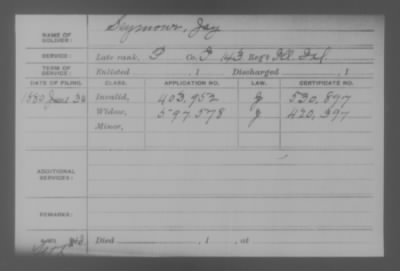 NAME OF SOLDIER: Seymour, Jay
SERVICE: Late rank, P Co. I 143 Reg't Ill. Inf.
TERM OF SERVICE: Enlisted , 1 Discharged , 1
DATE OF FILING. CLASS. APPLICATION NO. LAW. CERTIFICATE NO.
1880 Invalid, 403,952 J 530,897
Widow, 597,578 J 420,397
Minor,
ADDITIONAL SERVICES:
REMARKS:
Died , 1 , at